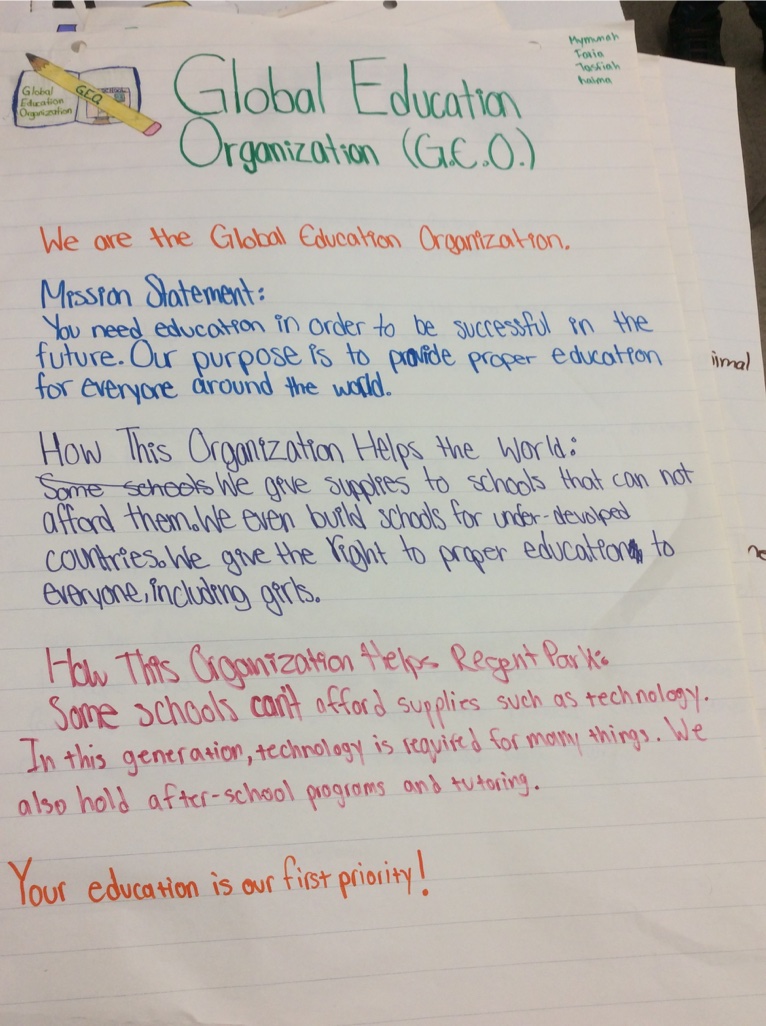 Mymunah
Foxia
Tasfiah
Naima
Global
Education
Organization
GEO
Global Education
Organization (G.E.O.)
We are the Global Education Organization.
Mission Statement:
You need education in order to be successful in the
future. Our purpose is to provide proper education
for everyone around the world.
How This Organization Helps the World:
Some schools We give supplies to schools that can not
afford them. We even build schools for under-devolped
countries. We give the right to proper education to
everyone, including girls.
How This Organization Helps Regent Park:
Some schools can't afford supplies such as technology.
In this generation, technology is required for many things. We
also hold after-school programs and tutoring.
Your education is our first priority!